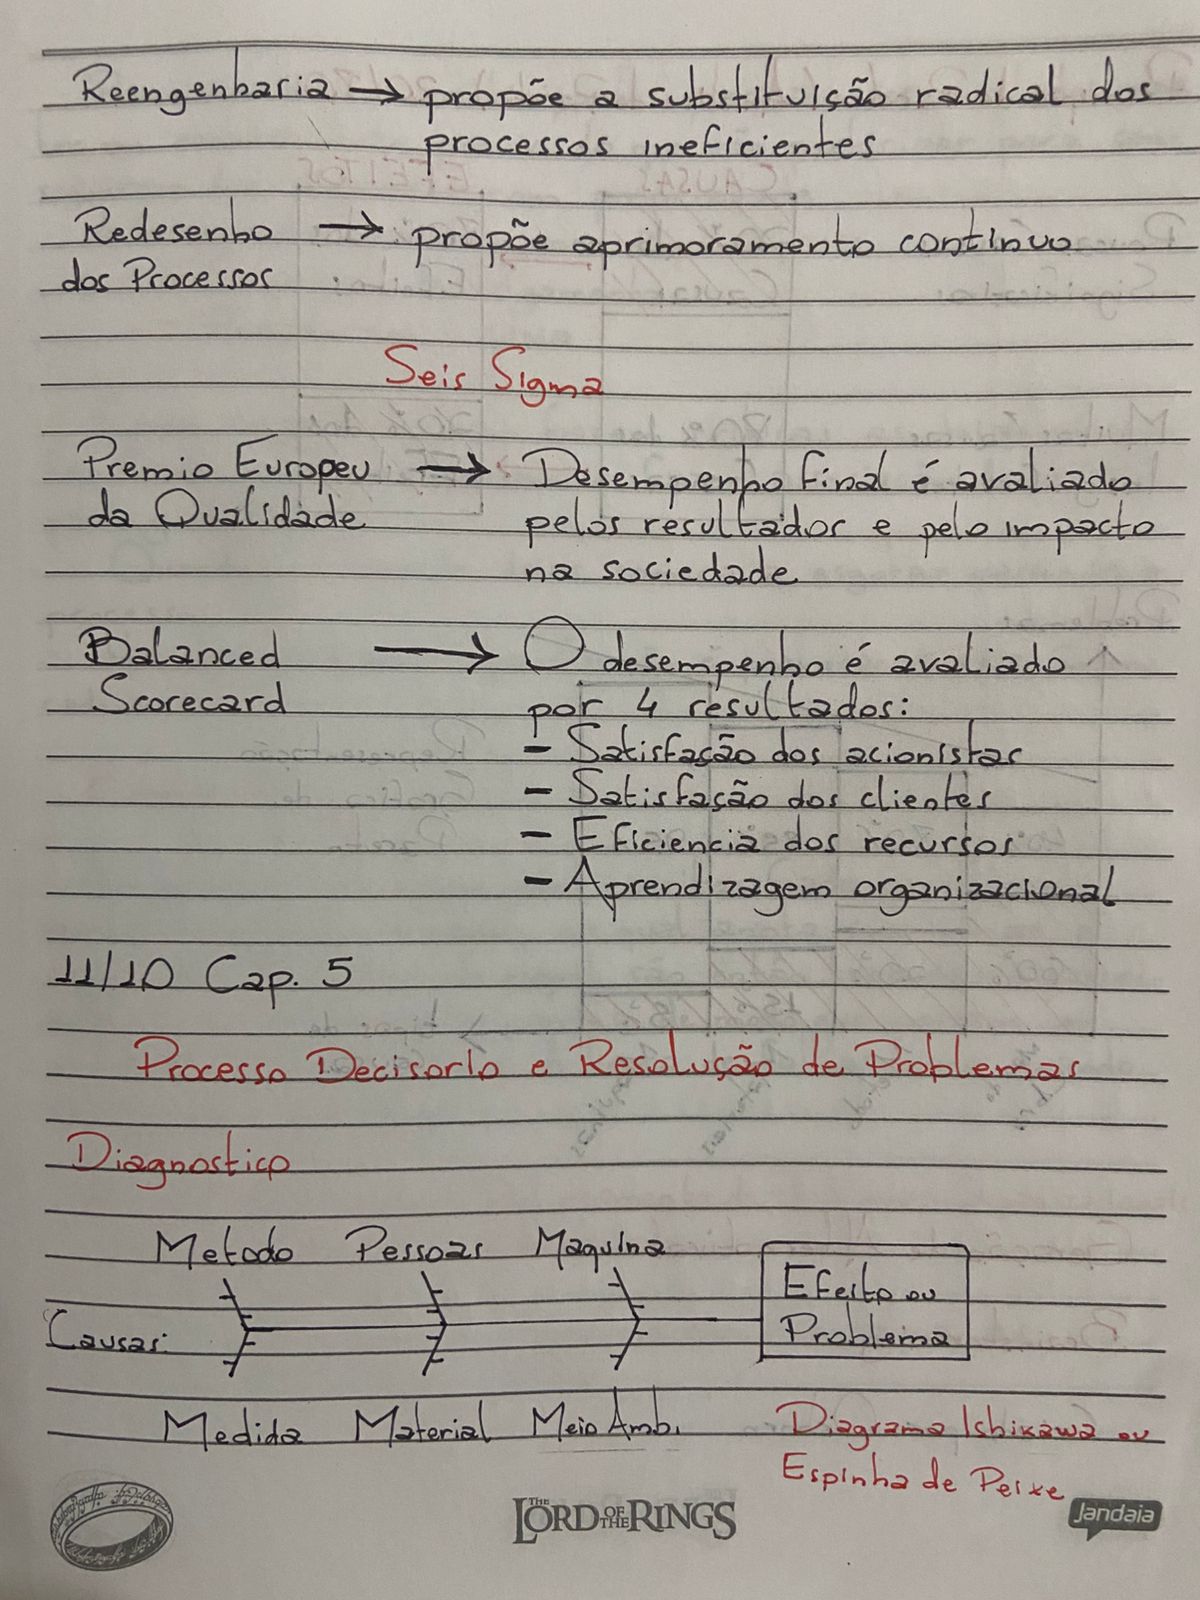 Reengenharia → propõe a substituição radical dos
processos ineficientes
Redesenho → propõe aprimoramento contínuo
dos Processos
Seis Sigma
Premio Europeu → Desempenho final é avaliado
da Qualidade pelos resultados e pelo impacto
na sociedade
Balanced → O desempenho é avaliado
Scorecard por 4 resultados:
- Satisfação dos acionistas
- Satisfação dos clientes
- Eficiencia dos recursos
- Aprendizagem organizacional
11/10 Cap. 5
Processo Decisorio e Resolução de Problemas
Diagnostico
Metodo Pessoas Maquina
Efeito ou
Causas: Problema
Medida Material Meio Amb. Diagrama Ishikawa ou
Espinha de Peixe
THE LORD OF THE RINGS
Jandaia